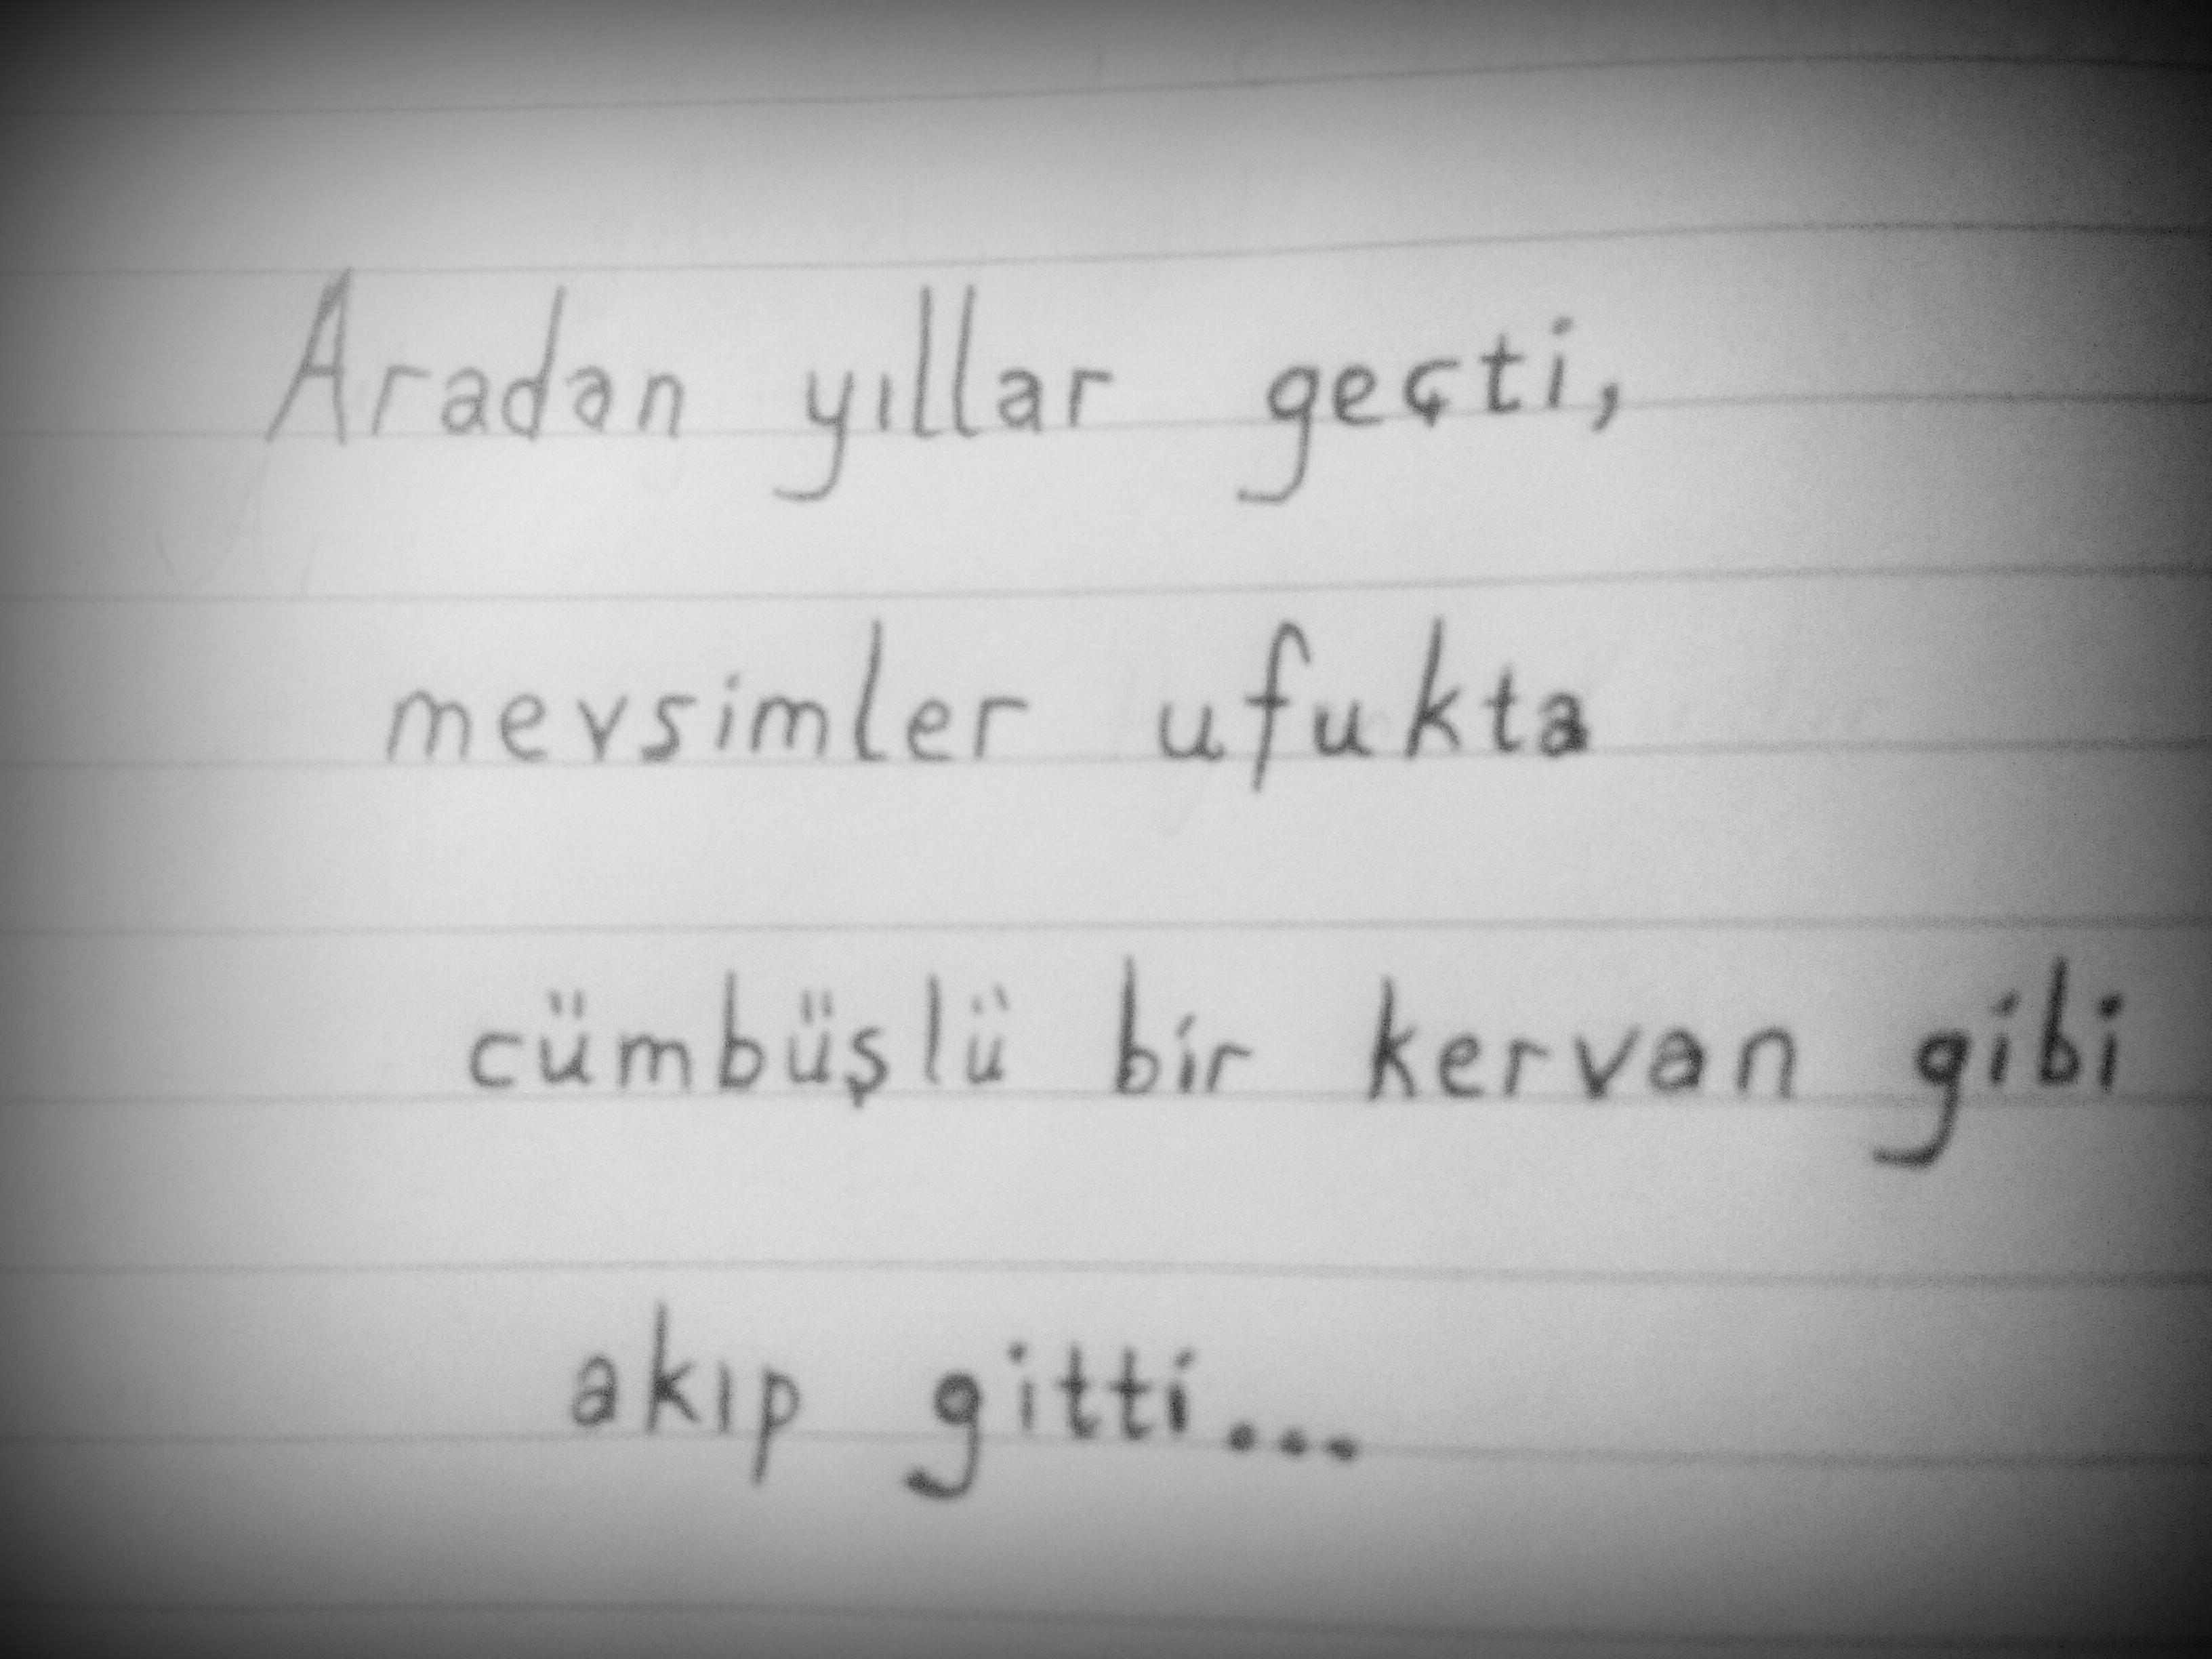 Aradan yıllar geçti,
mevsimler ufukta
cümbüşlü bir kervan gibi
akıp gitti...